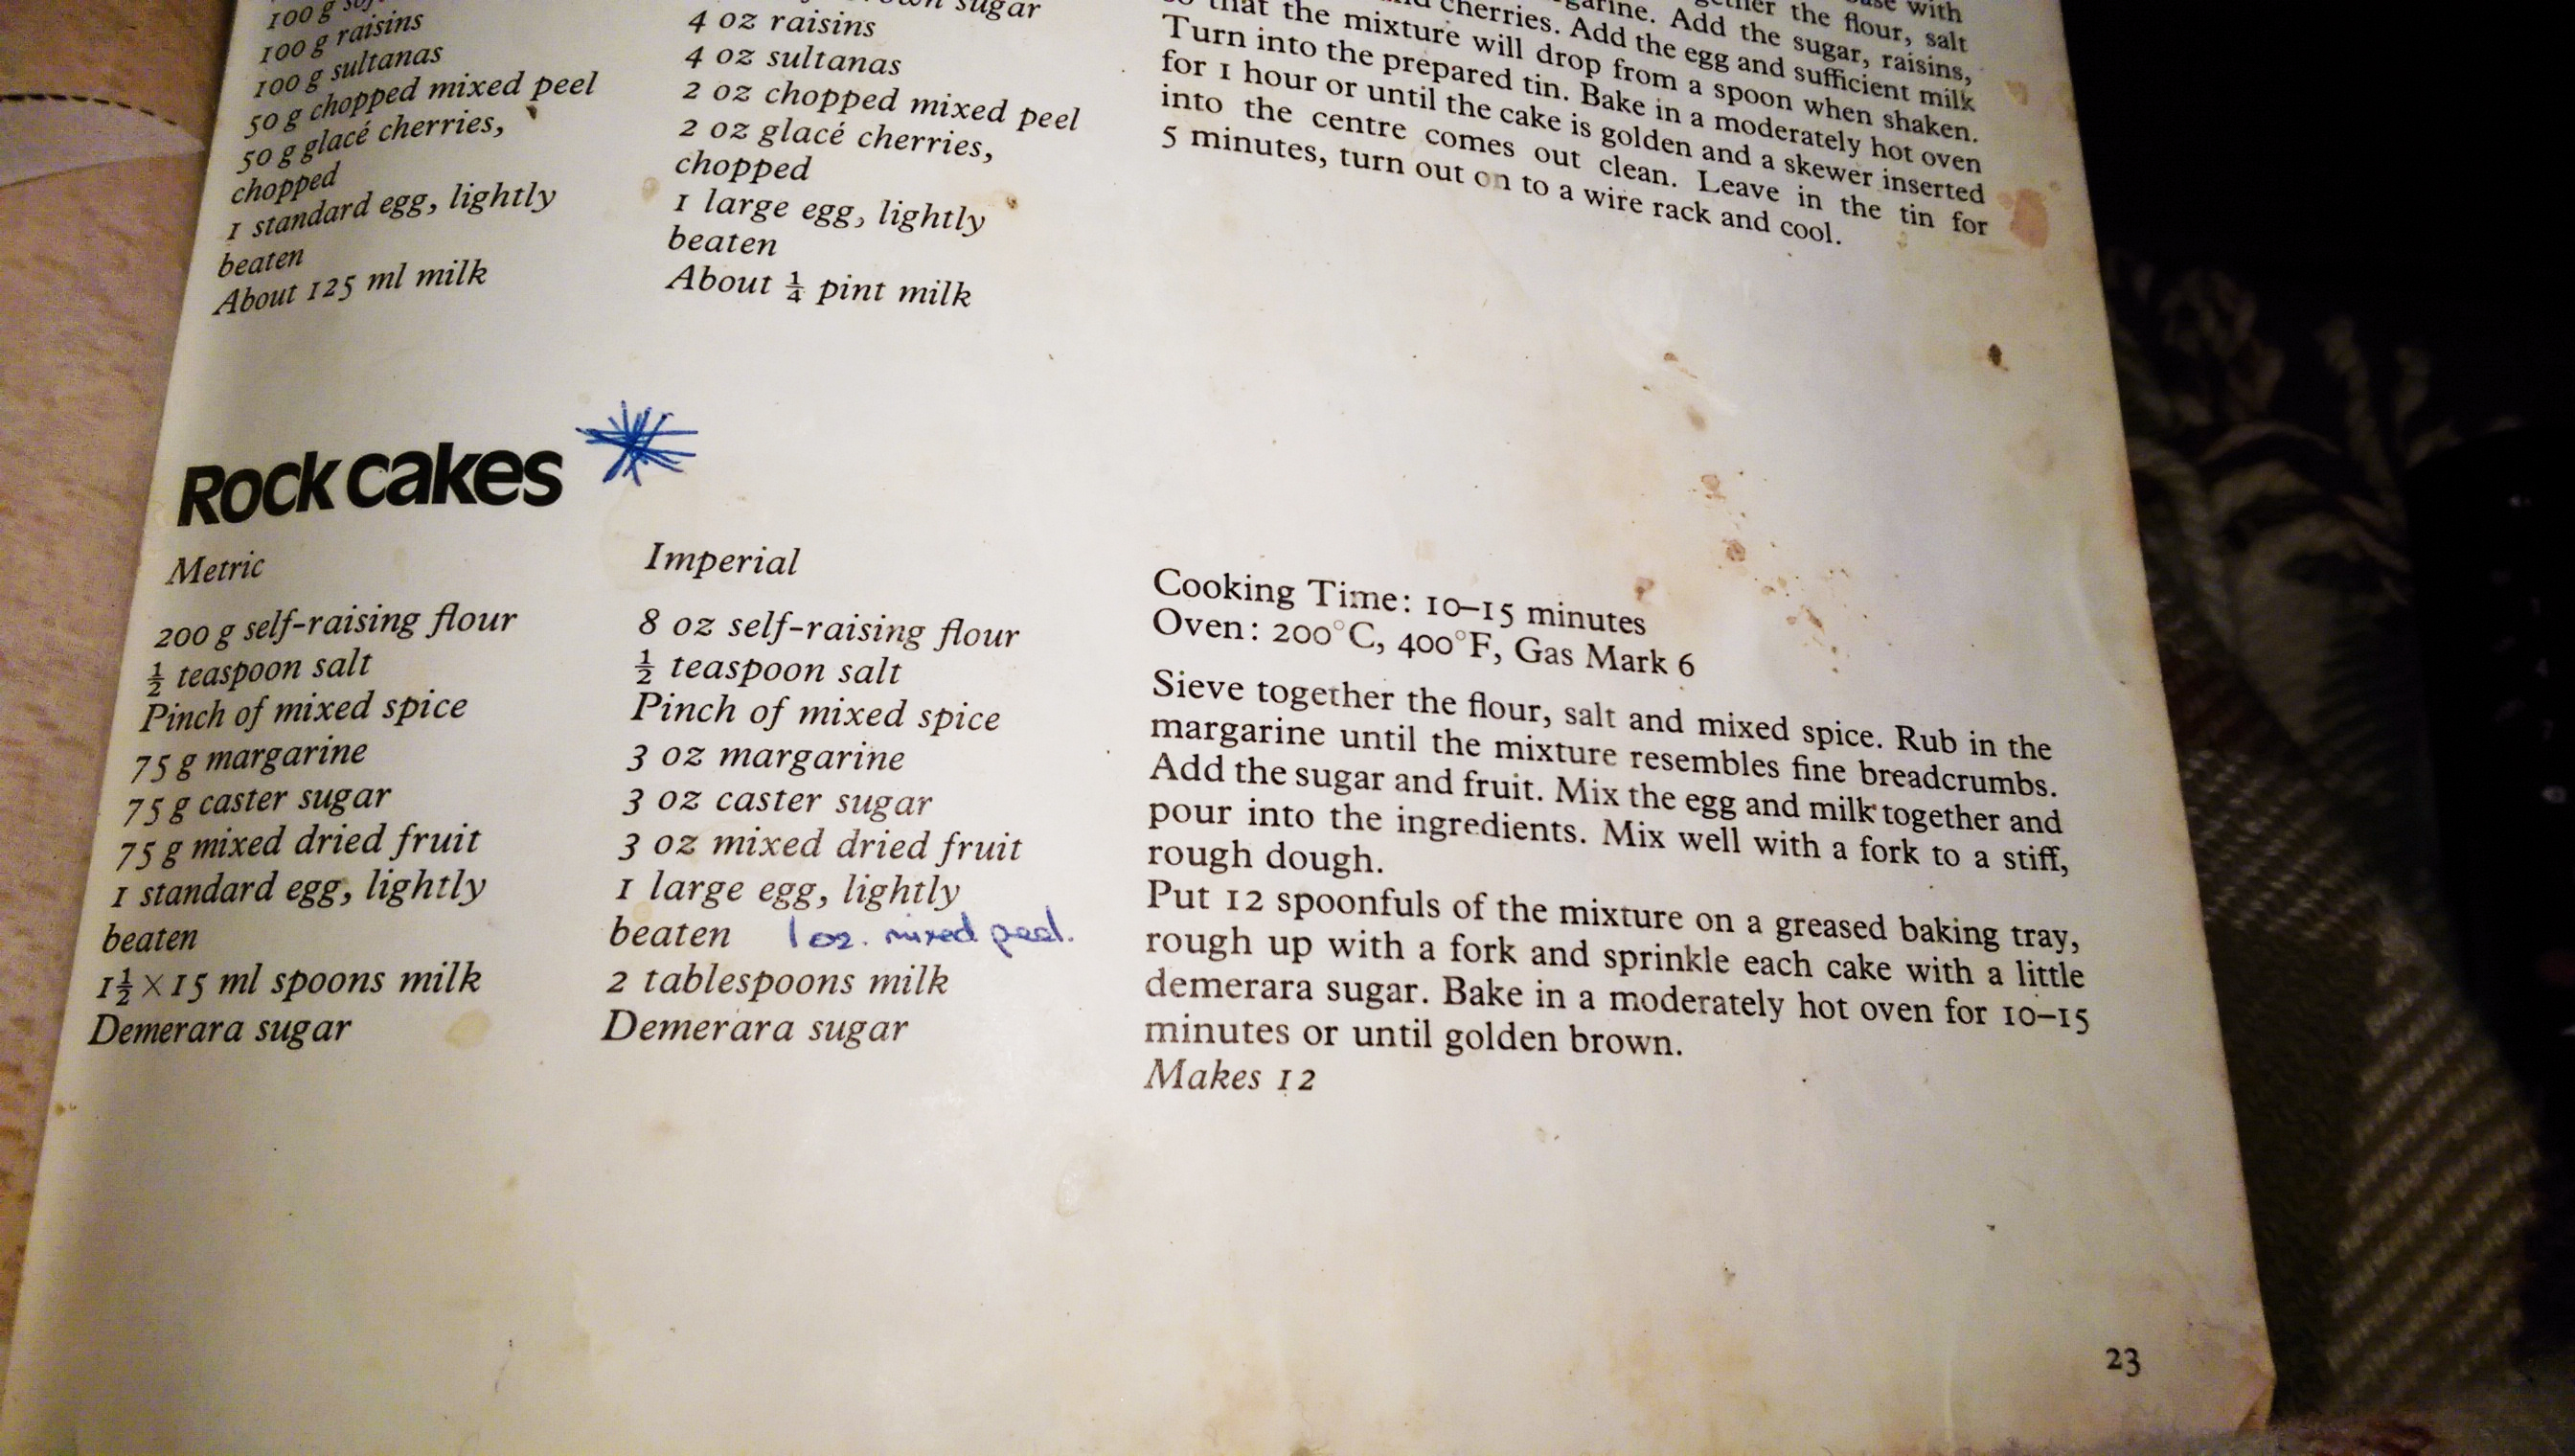 100 g
100 g raisins
100 g sultanas
50 g chopped mixed peel
50 g glacé cherries,
chopped
1 standard egg, lightly
beaten
About 125 ml milk
sugar
4 oz raisins
4 oz sultanas
2 oz chopped mixed peel
2 oz glacé cherries,
chopped
1 large egg, lightly
beaten
About ¼ pint milk
with
the flour, salt
Add the sugar, raisins,
cherries. Add the egg and sufficient milk
that the mixture will drop from a spoon when shaken.
Turn into the prepared tin. Bake in a moderately hot oven
for 1 hour or until the cake is golden and a skewer inserted
into the centre comes out clean. Leave in the tin for
5 minutes, turn out on to a wire rack and cool.
Rock cakes
Metric
200 g self-raising flour
½ teaspoon salt
Pinch of mixed spice
75 g margarine
75 g caster sugar
75 g mixed dried fruit
1 standard egg, lightly
beaten
1½ × 15 ml spoons milk
Demerara sugar
Imperial
8 oz self-raising flour
½ teaspoon salt
Pinch of mixed spice
3 oz margarine
3 oz caster sugar
3 oz mixed dried fruit
1 large egg, lightly
beaten 1 oz. mixed peel.
2 tablespoons milk
Demerara sugar
Cooking Time: 10–15 minutes
Oven: 200°C, 400°F, Gas Mark 6
Sieve together the flour, salt and mixed spice. Rub in the
margarine until the mixture resembles fine breadcrumbs.
Add the sugar and fruit. Mix the egg and milk together and
pour into the ingredients. Mix well with a fork to a stiff,
rough dough.
Put 12 spoonfuls of the mixture on a greased baking tray,
rough up with a fork and sprinkle each cake with a little
demerara sugar. Bake in a moderately hot oven for 10–15
minutes or until golden brown.
Makes 12
23